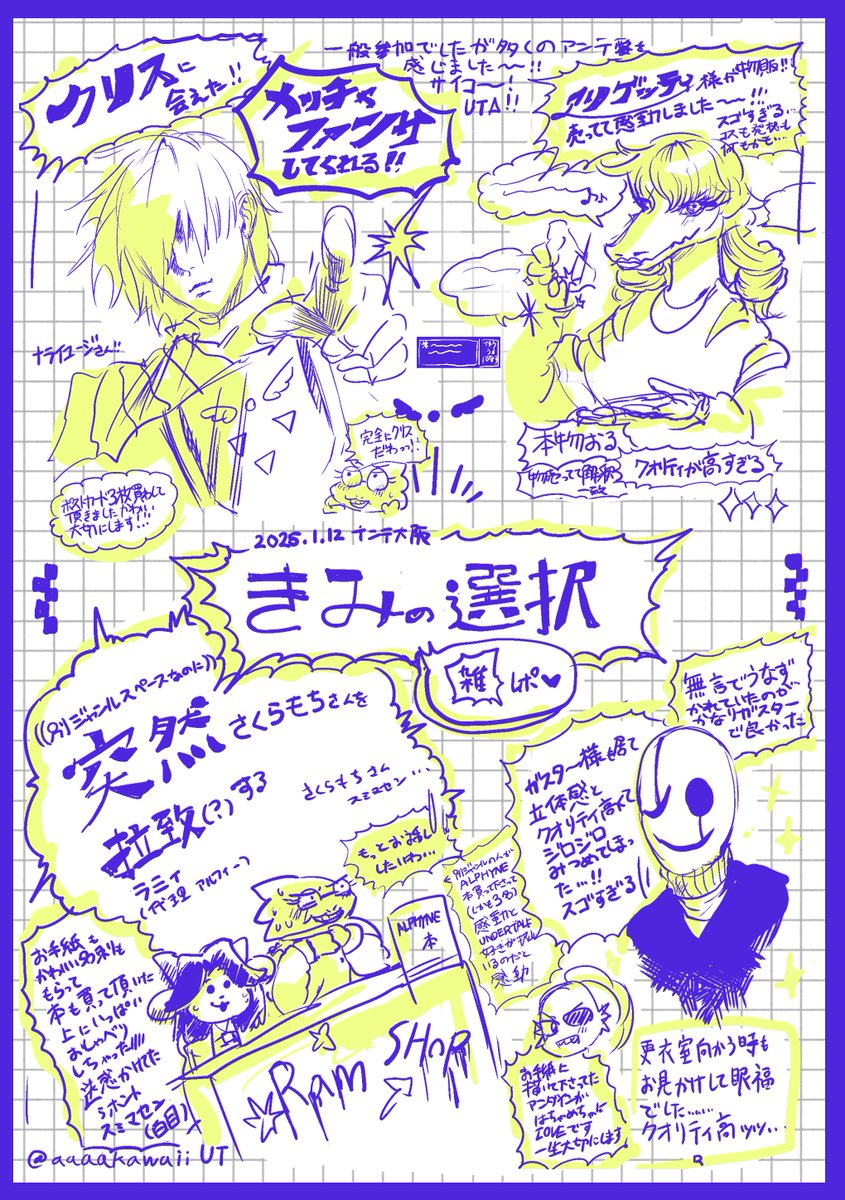 クリスに
会えた!!
メッチャ
ファンサ
してくれる!!
一般参加でしたが多くのアンテ愛を
感じました〜!!
サイコ〜!
UTA!!
様が物販!!
売ってて感動しました〜!!!
スゴすぎる…
何もかも…
完全にクリス
だわっっ!!
ポストカード3枚買わして
頂きました かわいい
大切にします!!
本物おる
クオリティが高すぎる
2025.1.12 ナンテ大阪
きみの選択
雑レポ♥
((別ジャンルスペースなのに))
突然さくらもちさんを
拉致(?)する
さくらもちさん
スミマセン…
ラミィ
(代理 アルフィー)
もっとお話し
したいわ…
お手紙も
かわいいお名刺も
もらって
本も買って頂いた
上にいっぱい
おしゃべり
しちゃった
迷惑かけてた
らホント
スミマセン
(白目)
別ジャンルの人が
ALPHYNE
本買って下さって
(しかも3名)
感動と
UNDERTALE
好きが
いるのだと
感動
ALPHYNE
本
RAM SHOP
無言でうなず
かれていたのが
かなりガスター
で良かった
ガスター様も居て
立体感と
クオリティ高くて
ジロジロ
みつめてしまっ
た…!!
スゴすぎる
お手紙に
描いて下さってた
アンダインが
はちゃめちゃに
LOVEです
一生大切にします
更衣室向かう時も
お見かけして眼福
でした……
クオリティ高ッッ…
@aaaakawaii UT